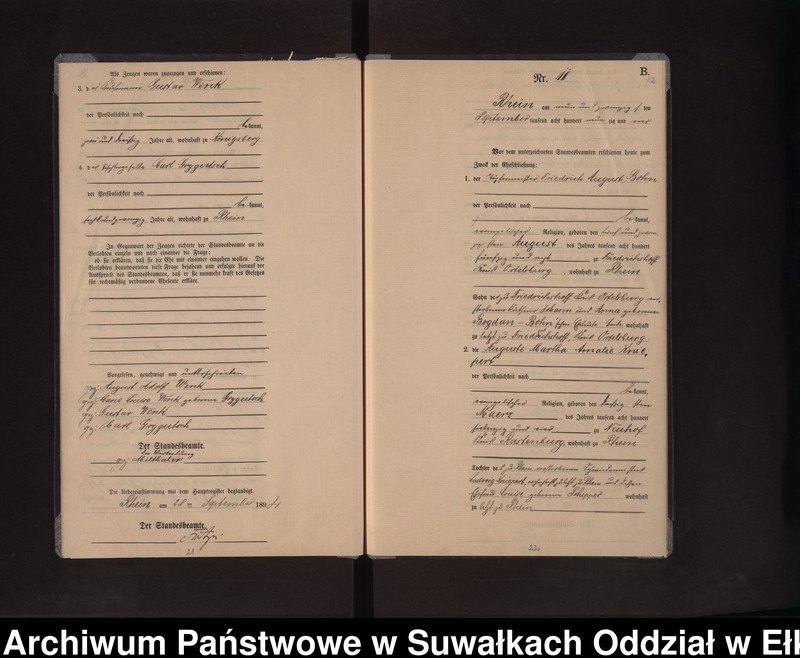 Als Zeugen waren zugezogen und erschienen:
3. der Gustav Werk
der Persönlichkeit nach
bekannt,
zwei und dreißig Jahre alt, wohnhaft zu Königsberg
4. der Carl Grygutsch
der Persönlichkeit nach
bekannt,
sechs und zwanzig Jahre alt, wohnhaft zu Rhein
In Gegenwart der Zeugen richtete der Standesbeamte an die
Verlobten einzeln und nach einander die Frage:
ob sie erklären, daß sie die Ehe mit einander eingehen wollen. Die
Verlobten beantworteten diese Frage bejahend und erfolgte hierauf der
Ausspruch des Standesbeamten, daß er sie nunmehr kraft des Gesetzes
für rechtmäßig verbundene Eheleute erkläre.
Vorgelesen, genehmigt und unterschrieben
gez. August Adolf Werk
gez. Louise Werk geborene Grygutsch
gez. Gustav Werk
gez. Carl Grygutsch
Der Standesbeamte.
In Vertretung
gez. Milthaler
Die Uebereinstimmung mit dem Hauptregister beglaubigt.
Rhein am September 1894
Der Standesbeamte.
21
B.
Nr. 11
Rhein am neun und zwanzigsten
September tausend acht hundert neunzig und vier
Vor dem unterzeichneten Standesbeamten erschienen heute zum
Zweck der Eheschließung:
1. der Friedrich August Böhn
der Persönlichkeit nach
bekannt,
evangelischer Religion, geboren den
August des Jahres tausend acht hundert
fünfzig und acht zu Friedrichshoff
Kreis Ortelsburg, wohnhaft zu Rhein
Sohn des zu Friedrichshoff Kreis Ortelsburg
Johann und Anna geborenen
Bogdan - Böhn'schen Eheleute wohnhaft
zu letzt zu Friedrichshoff, Kreis Ortelsburg.
2. die Auguste Martha Amalie
der Persönlichkeit nach
bekannt,
evangelischer Religion, geboren den
Maerz des Jahres tausend acht hundert
siebenzig und vier zu Neuhof
Kreis Rastenburg, wohnhaft zu Rhein
Tochter des zu Rhein verstorbenen
Ludwig
Ehefrau Louise geborene wohnhaft
zu letzt zu Rhein
22
Archiwum Państwowe w Suwałkach Oddział w Ełk